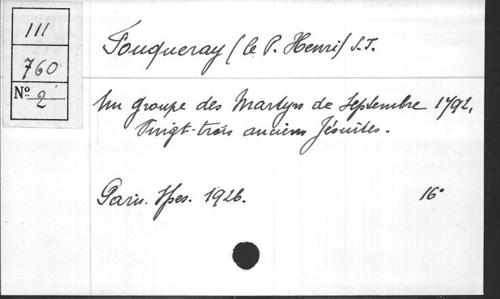 III
760
Nº 2
Fouqueray (le P. Henri) S.J.
Un groupe des Martyrs de Septembre 1792,
Vingt-trois anciens Jésuites.
Paris. Spes. 1926. 16º